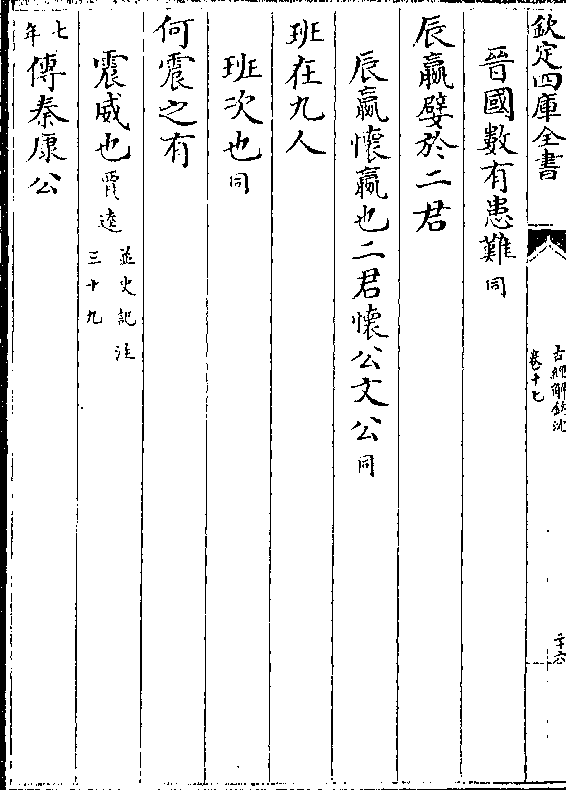 欽定四庫全書
古經解鉤沈
卷十七
二十六
晉國數有患難同
辰嬴嬖於二君
辰嬴懷嬴也二君懷公文公同
班在九人
班次也同
何震之有
震威也賈逵並史記注三十九
七年傳秦康公